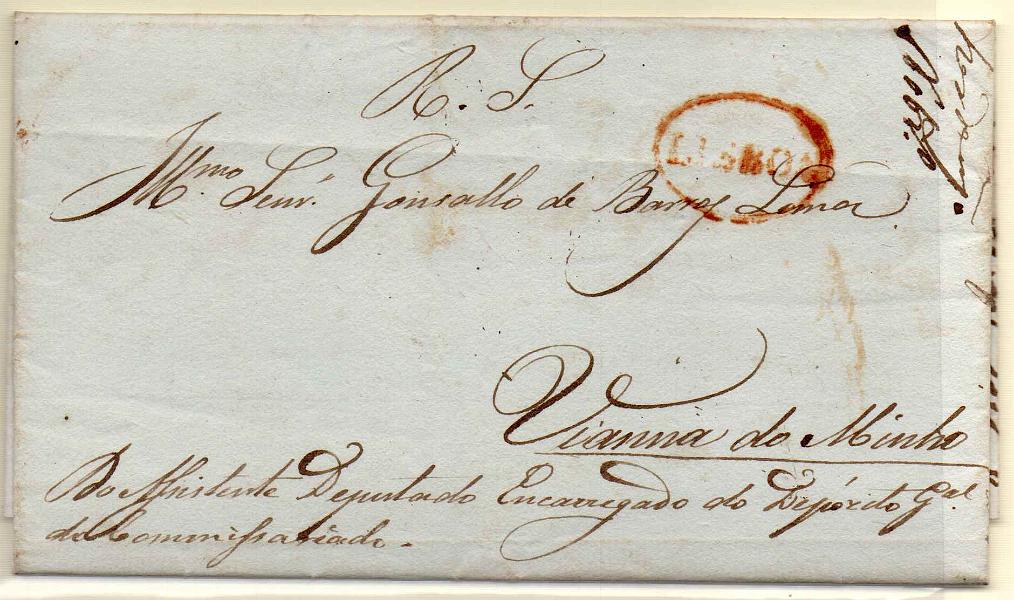 R. S.
LISBOA
Illmo Senr. Gonsallo de Barros Lima
Vianna do Minho
Do Assistente Deputado Encarregado do Depózito Gal.
do Commissariado.